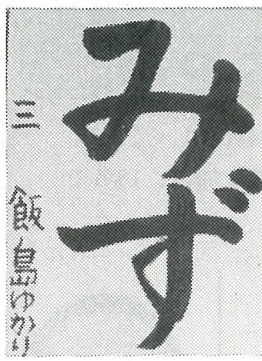 みず
三 飯島ゆかり